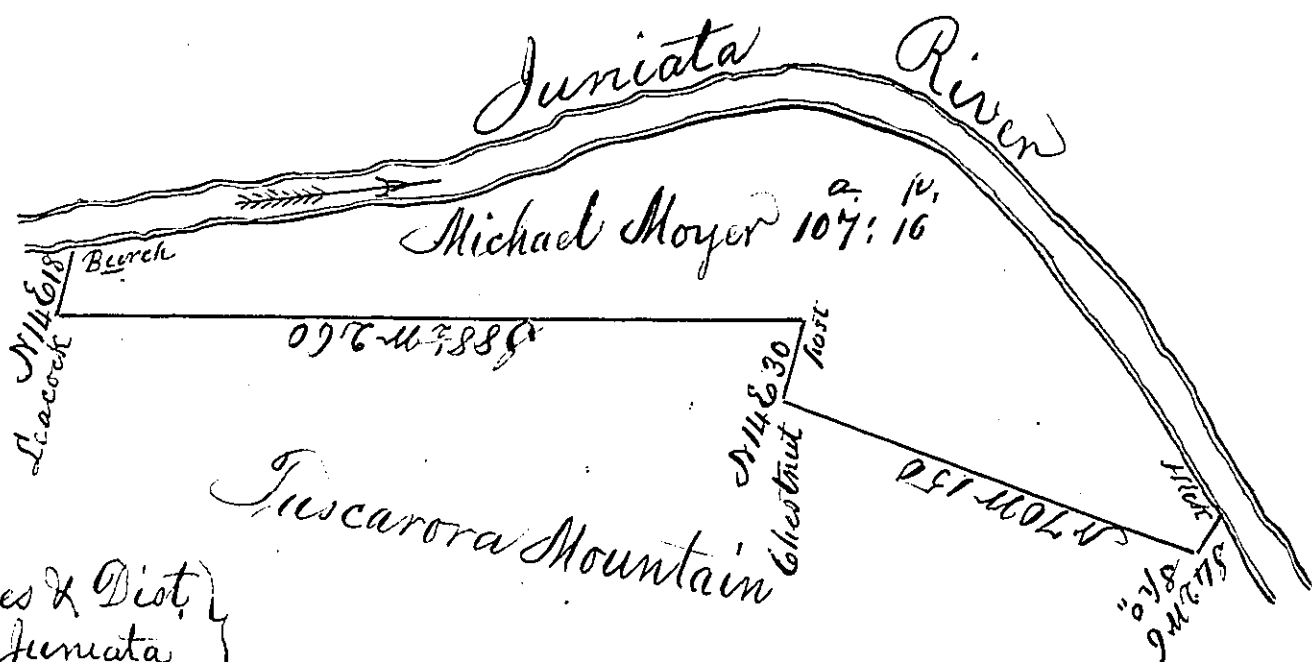 Juniata River
Michael Moyer 107 a: 16 p.
Burch
N14E18
Leacock
S88½W260
post
N14E30
Chestnut
N70W150
Tuscarora Mountain
es & Dist.
Juniata